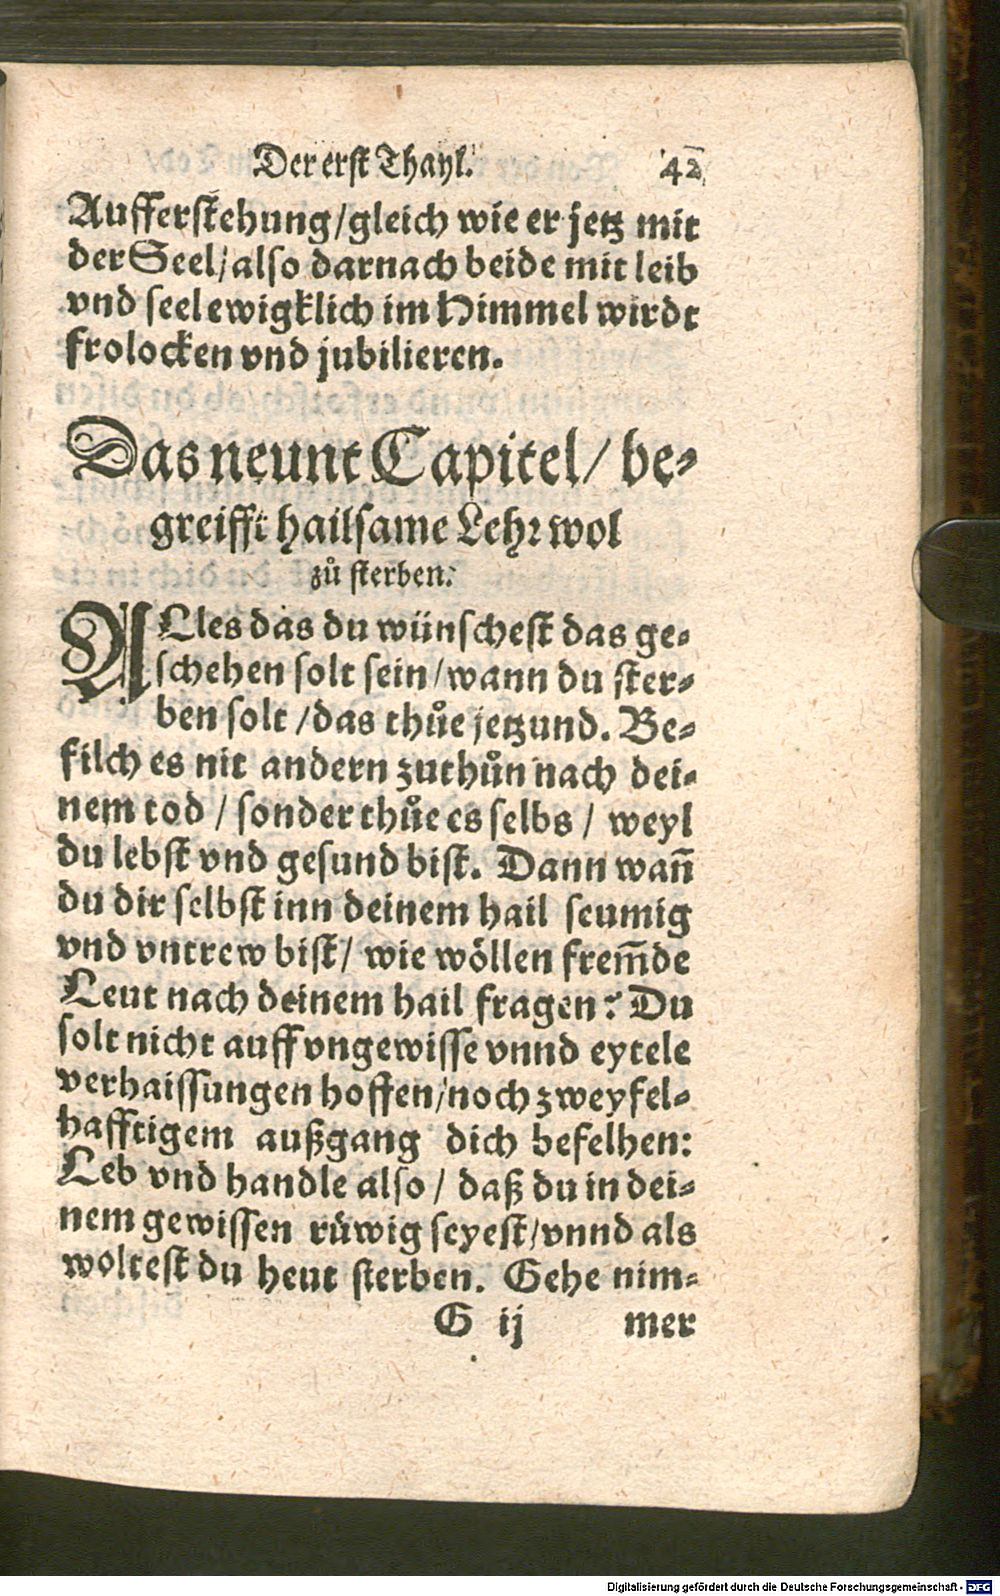 Der erst Thayl. 42
Aufferstehung/gleich wie er jetz mit
der Seel/also darnach beide mit leib
vnd seel ewigklich im Himmel wirdt
frolocken vnd jubilieren.
Das neunt Capitel/ be-
greifft hailsame Lehr wol
zů sterben.
ALles das du wünschest das ge-
schehen solt sein/wann du ster-
ben solt /das thůe jetzund. Be-
filch es nit andern zuthůn nach dei-
nem tod / sonder thůe es selbs / weyl
du lebst vnd gesund bist. Dann wañ
du dir selbst inn deinem hail seumig
vnd vntrew bist/ wie wöllen frem̄de
Leut nach deinem hail fragen? Du
solt nicht auff vngewisse vnnd eytele
verhaissungen hoffen/noch zweyfel-
hafftigem außgang dich befelhen:
Leb vnd handle also/ daß du in dei-
nem gewissen rüwig seyest/vnnd als
woltest du heut sterben. Gehe nim-
G ij mer
Digitalisierung gefördert durch die Deutsche Forschungsgemeinschaft - DFG